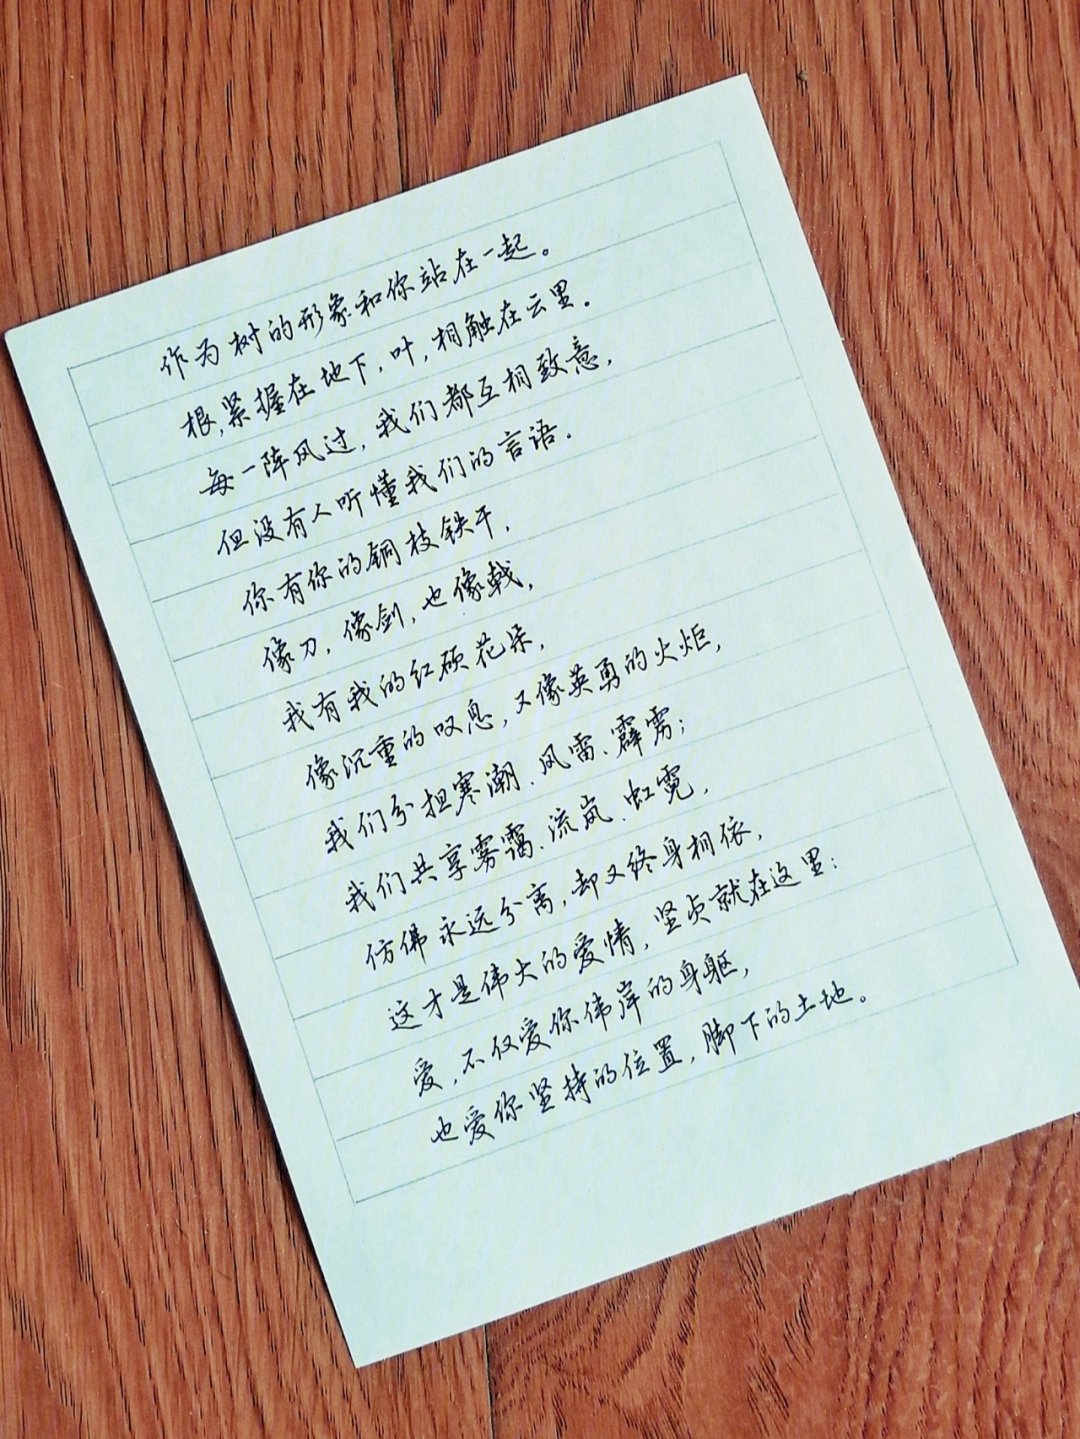 作为树的形象和你站在一起。
根,紧握在地下,叶,相触在云里。
每一阵风过,我们都互相致意,
但没有人听懂我们的言语.
你有你的铜枝铁干,
像刀,像剑,也像戟,
我有我的红硕花朵,
像沉重的叹息,又像英勇的火炬,
我们分担寒潮、风雷、霹雳;
我们共享雾霭、流岚、虹霓,
仿佛永远分离,却又终身相依,
这才是伟大的爱情,坚贞就在这里:
爱,不仅爱你伟岸的身躯,
也爱你坚持的位置,脚下的土地。